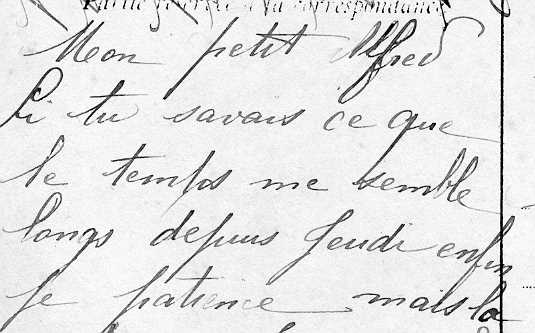 Partie réservée à la correspondance
Mon petit Alfred
Si tu savais ce que
le temps me semble
longs depuis Jeudi enfin
je patience mais la